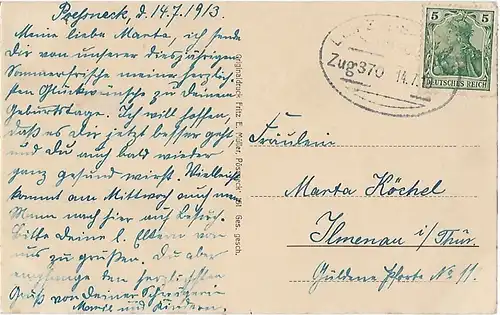 Pößneck, d. 14.7.1913.
Meine liebe Marta, ich sende
Dir von unserer diesjährigen
Sommerfrische meine herzlich-
sten Glückwünsche zu deinem
Geburtstage. Ich will hoffen,
daß es Dir jetzt besser geht
und Du auch bald wieder
ganz gesund wirst. Vielleicht
kommt am Mittwoch auch mein
Mann nach hier auf Besuch.
Bitte Deine l. Eltern von
uns zu grüßen. Du aber
empfange den herzlichsten
Gruß von Deiner Schwägerin
und Kindern.
Original-Druck Fritz E. Müller, Pössneck. Ges. gesch.
Zug 370 14.7.1
5 5
DEUTSCHES REICH
Fräulein
Marta Köchel
Ilmenau i/Thür.
Güldene Pforte No 11.